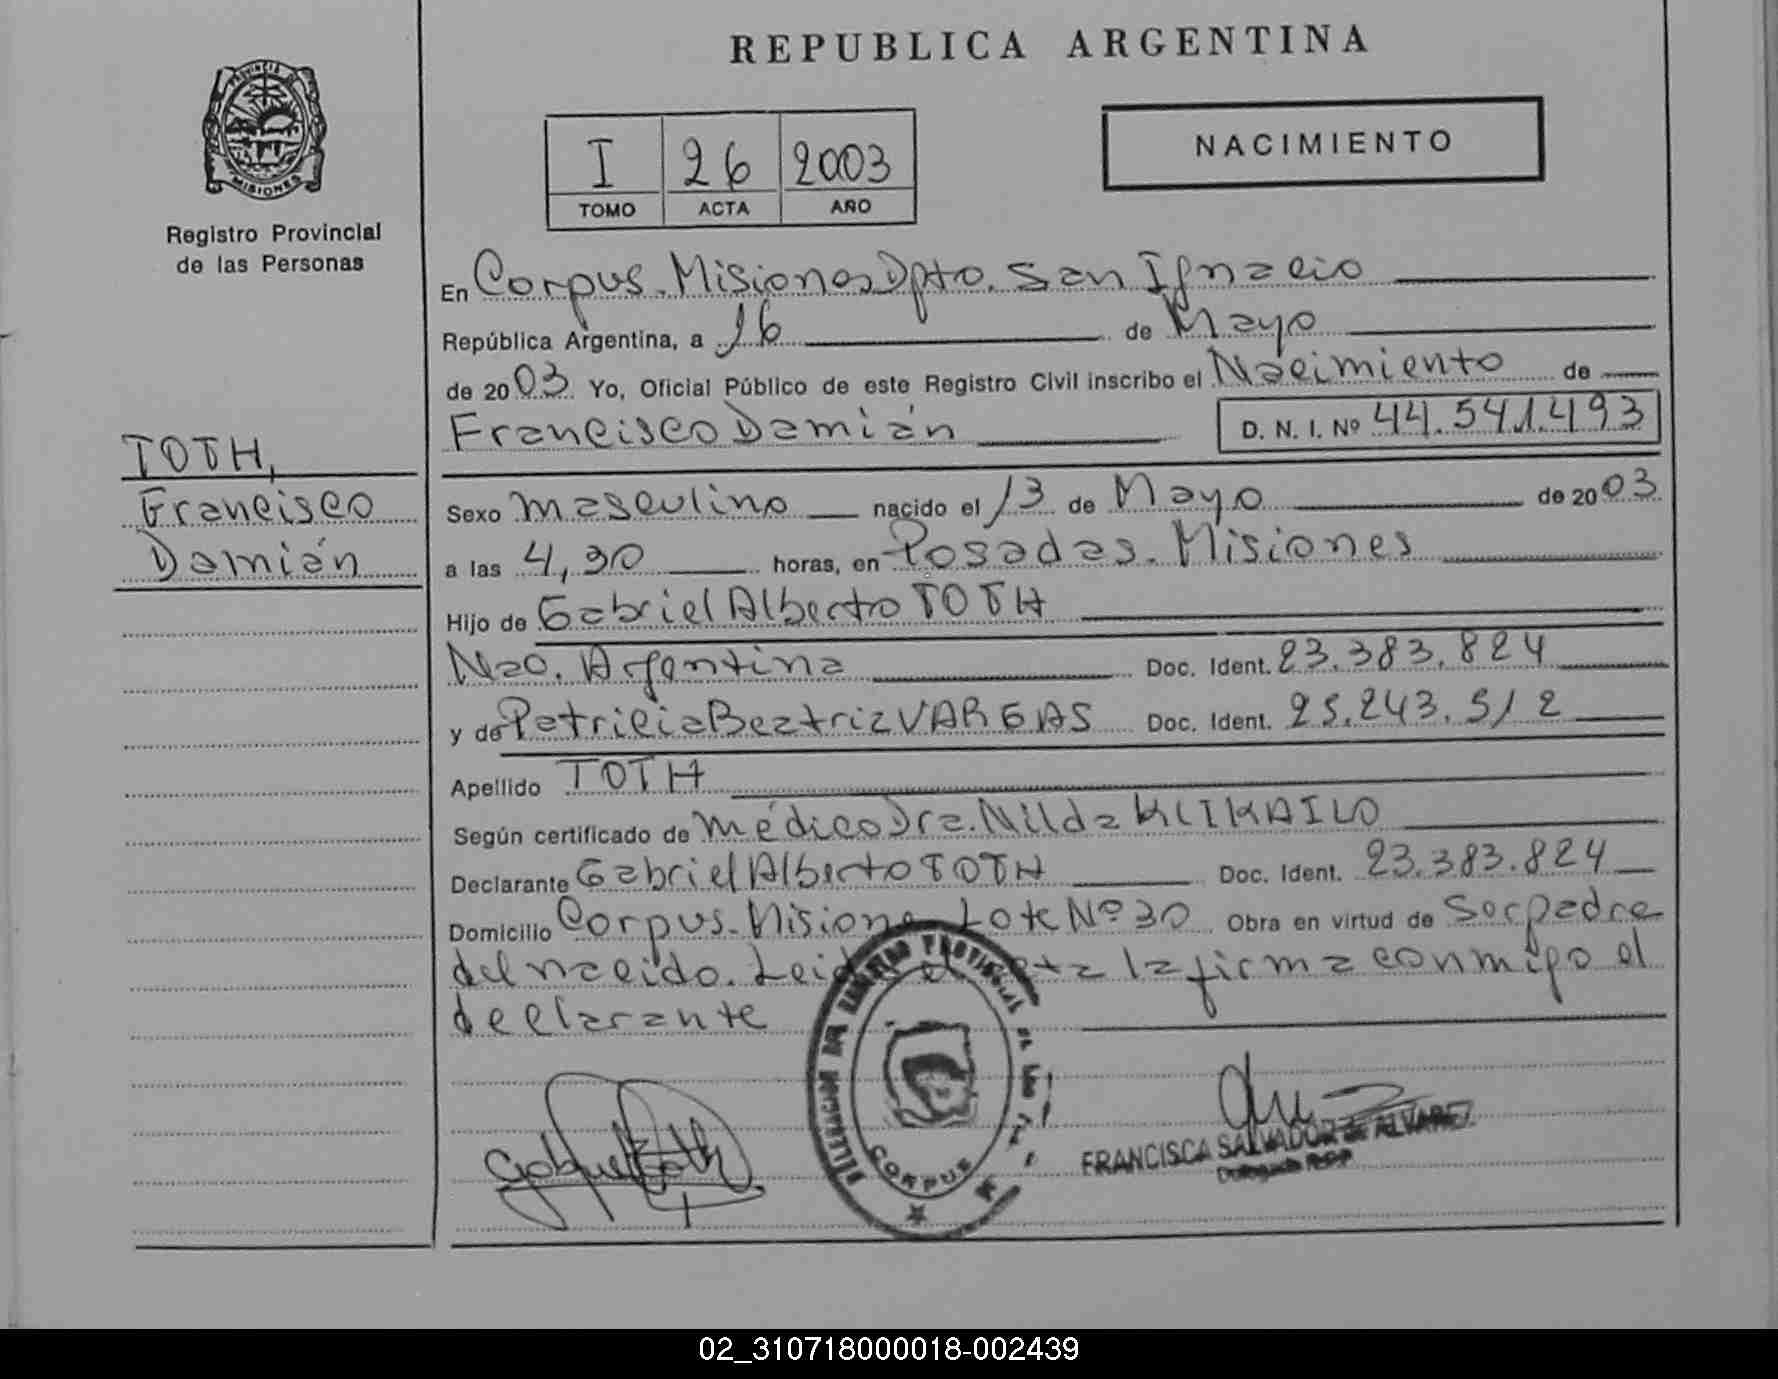 REPUBLICA ARGENTINA
PROVINCIA DE
MISIONES
Registro Provincial
de las Personas
I 26 2003
TOMO ACTA AÑO
NACIMIENTO
TOTH,
Francisco
Damián
En Corpus. Misiones Dpto. San Ignacio
República Argentina, a 16 de Mayo
de 2003 Yo, Oficial Público de este Registro Civil inscribo el Nacimiento de
Francisco Damián D. N. I. Nº 44.541.493
Sexo Masculino nacido el 13 de Mayo de 2003
a las 4,30 horas, en Posadas. Misiones
Hijo de Gabriel Alberto TOTH
Nac. Argentina Doc. Ident. 23.383.824
y de Patricia Beatriz VARGAS Doc. Ident. 25.243.512
Apellido TOTH
Según certificado de Médico Dra. Nilda KLIKAILO
Declarante Gabriel Alberto TOTH Doc. Ident. 23.383.824
Domicilio Corpus. Misiones Lote Nº 30 Obra en virtud de Ser padre
del nacido. Leida el acta la firma conmigo el
declarante
CORPUS
FRANCISCA SALVADOR de ALVAREZ
Delegada R.P.P
02_310718000018-002439